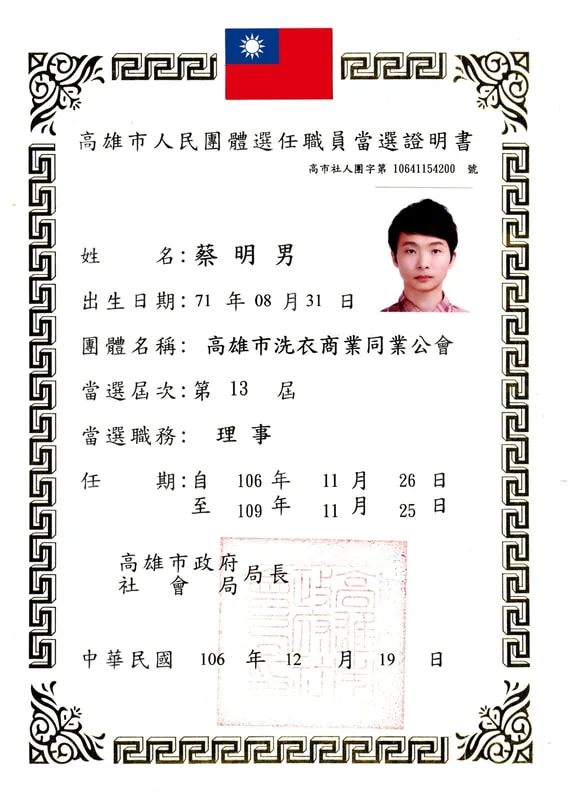 高雄市人民團體選任職員當選證明書
高市社人團字第 10641154200 號
姓 名：蔡明男
出生日期：71 年 08 月 31 日
團體名稱：高雄市洗衣商業同業公會
當選屆次：第 13 屆
當選職務：理事
任 期：自 106 年 11 月 26 日
至 109 年 11 月 25 日
高雄市政府
社會局局長
中華民國 106 年 12 月 19 日